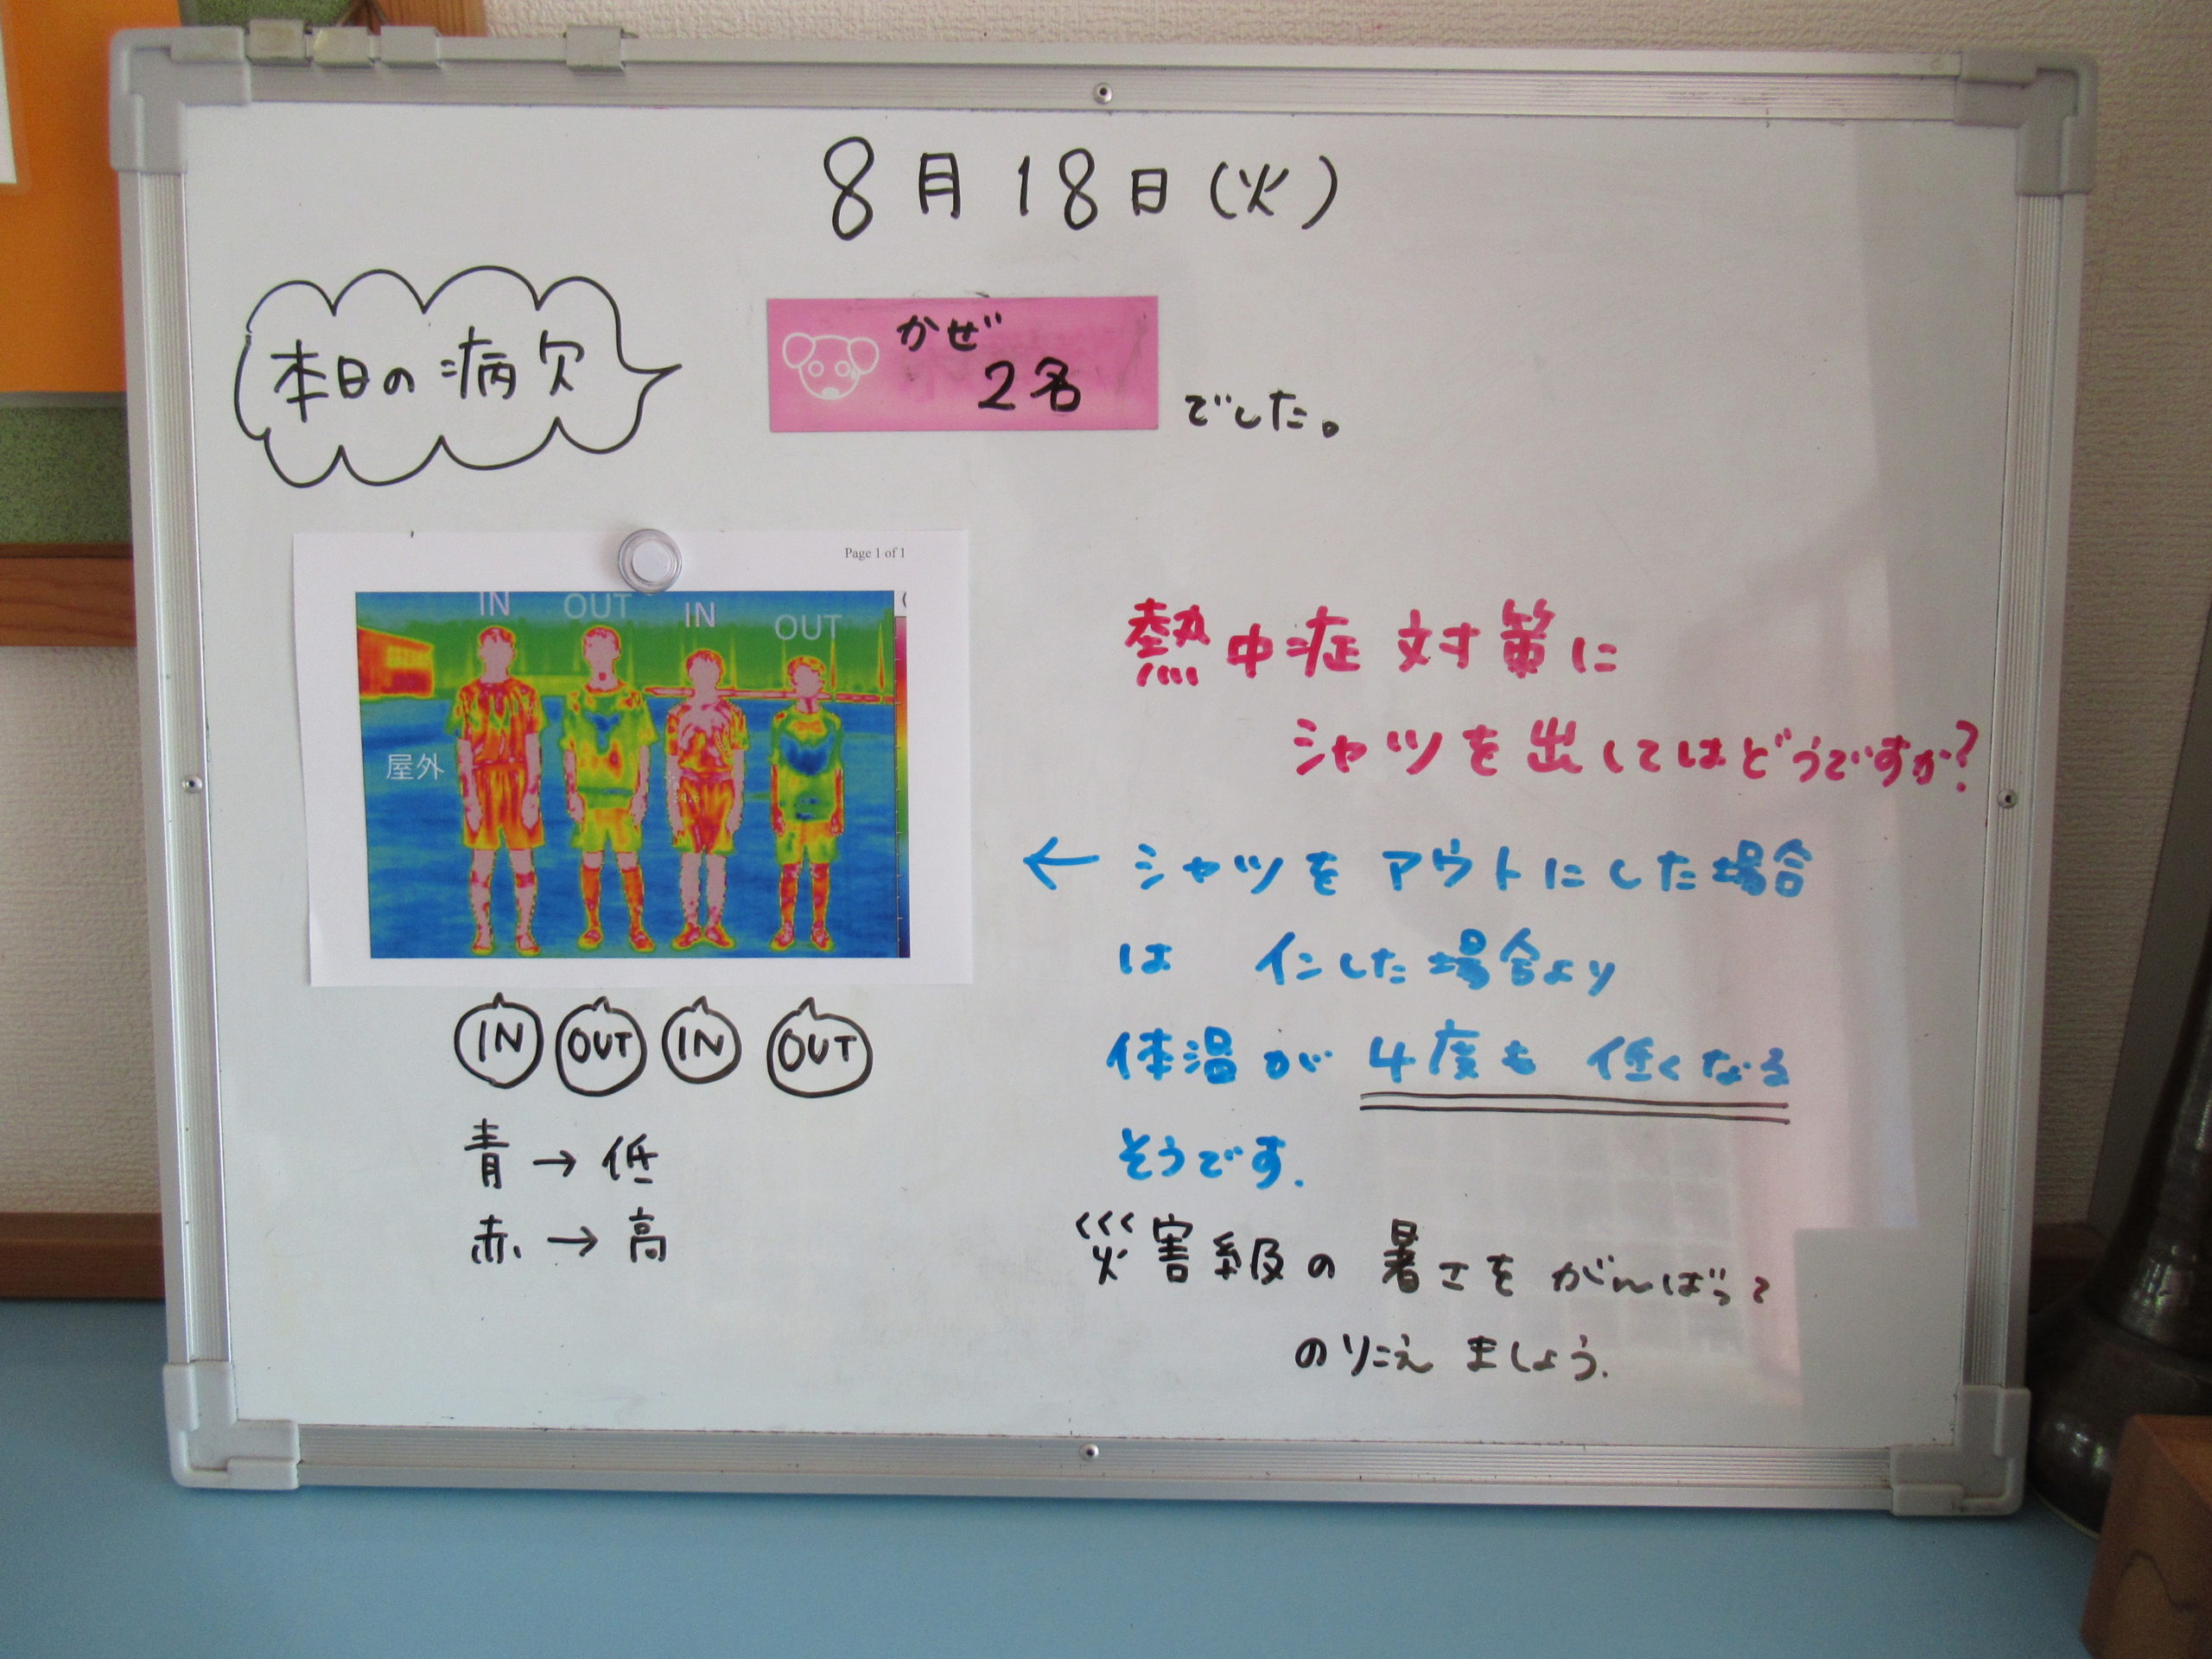 8月18日(火)
本日の病欠
かぜ
2名
でした。
Page 1 of 1
IN OUT IN OUT
屋外
IN OUT IN OUT
青→低
赤→高
熱中症対策に
シャツを出してはどうですか?
← シャツをアウトにした場合
は インした場合より
体温が 4度も 低くなる
そうです.
災害級の 暑さを がんばって
のりこえ ましょう.